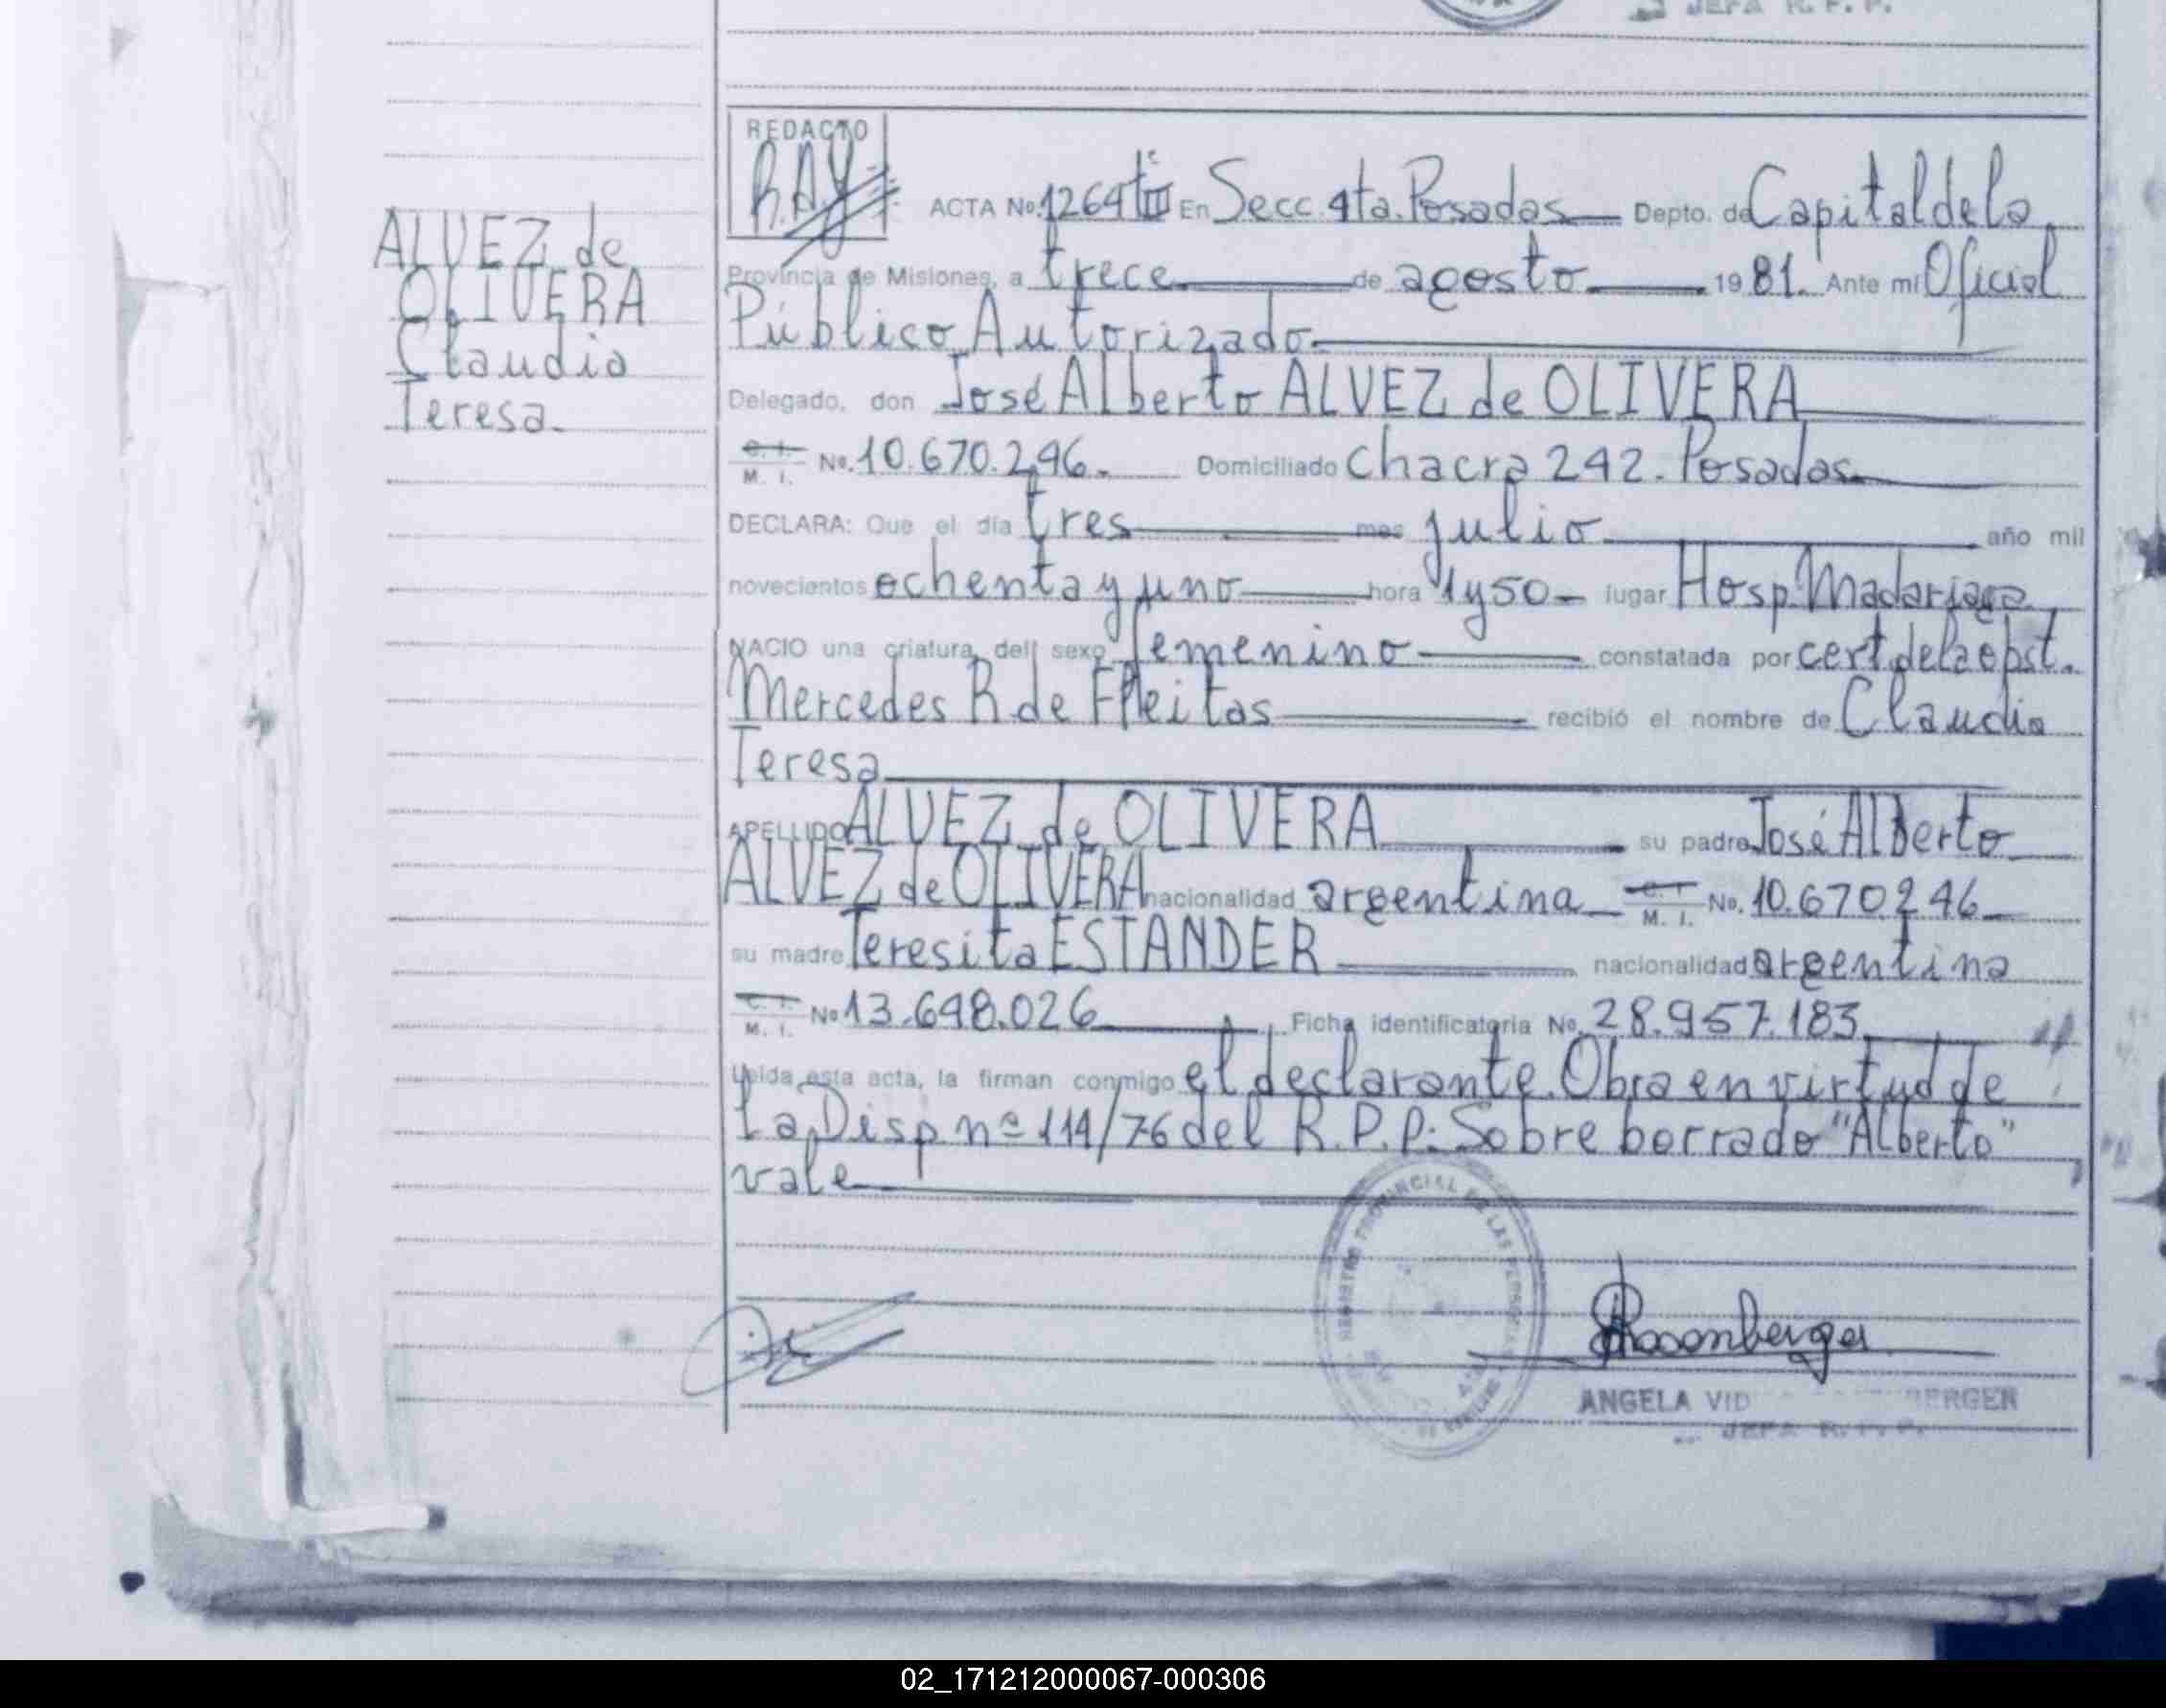 JEFA R. F. P.
REDACTO
ALVEZ de
OLIVERA
Claudia
Teresa.
ACTA No. 1264 tº III En Secc. 4ta. Posadas Depto. de Capital de la
Provincia de Misiones, a trece de agosto 1981. Ante mí Oficial
Público Autorizado
Delegado, don José Alberto ALVEZ de OLIVERA
C. I. M. I. No. 10.670.246. Domiciliado Chacra 242. Posadas
DECLARA: Que el día tres mes julio año mil
novecientos ochenta y uno hora 1 y 50 lugar Hosp. Madariaga
NACIO una criatura del sexo femenino constatada por cert. de la obst.
Mercedes R. de Freitas recibió el nombre de Claudia
Teresa
APELLIDO ALVEZ de OLIVERA su padre José Alberto
ALVEZ de OLIVERA nacionalidad argentina C. I. M. I. No. 10.670246
su madre Teresita ESTANDER nacionalidad argentina
C. I. M. I. No 13.648.026 Ficha identificatoria No. 28.957.183
Leída esta acta, la firman conmigo el declarante. Obra en virtud de
la Disp. nº 114/76 del R.P.P. Sobre borrado "Alberto"
vale
REGISTRO PROVINCIAL DE LAS PERSONAS
Rosenberger
ANGELA VID BERGEN
JEFA R. F. P.
02_171212000067-000306